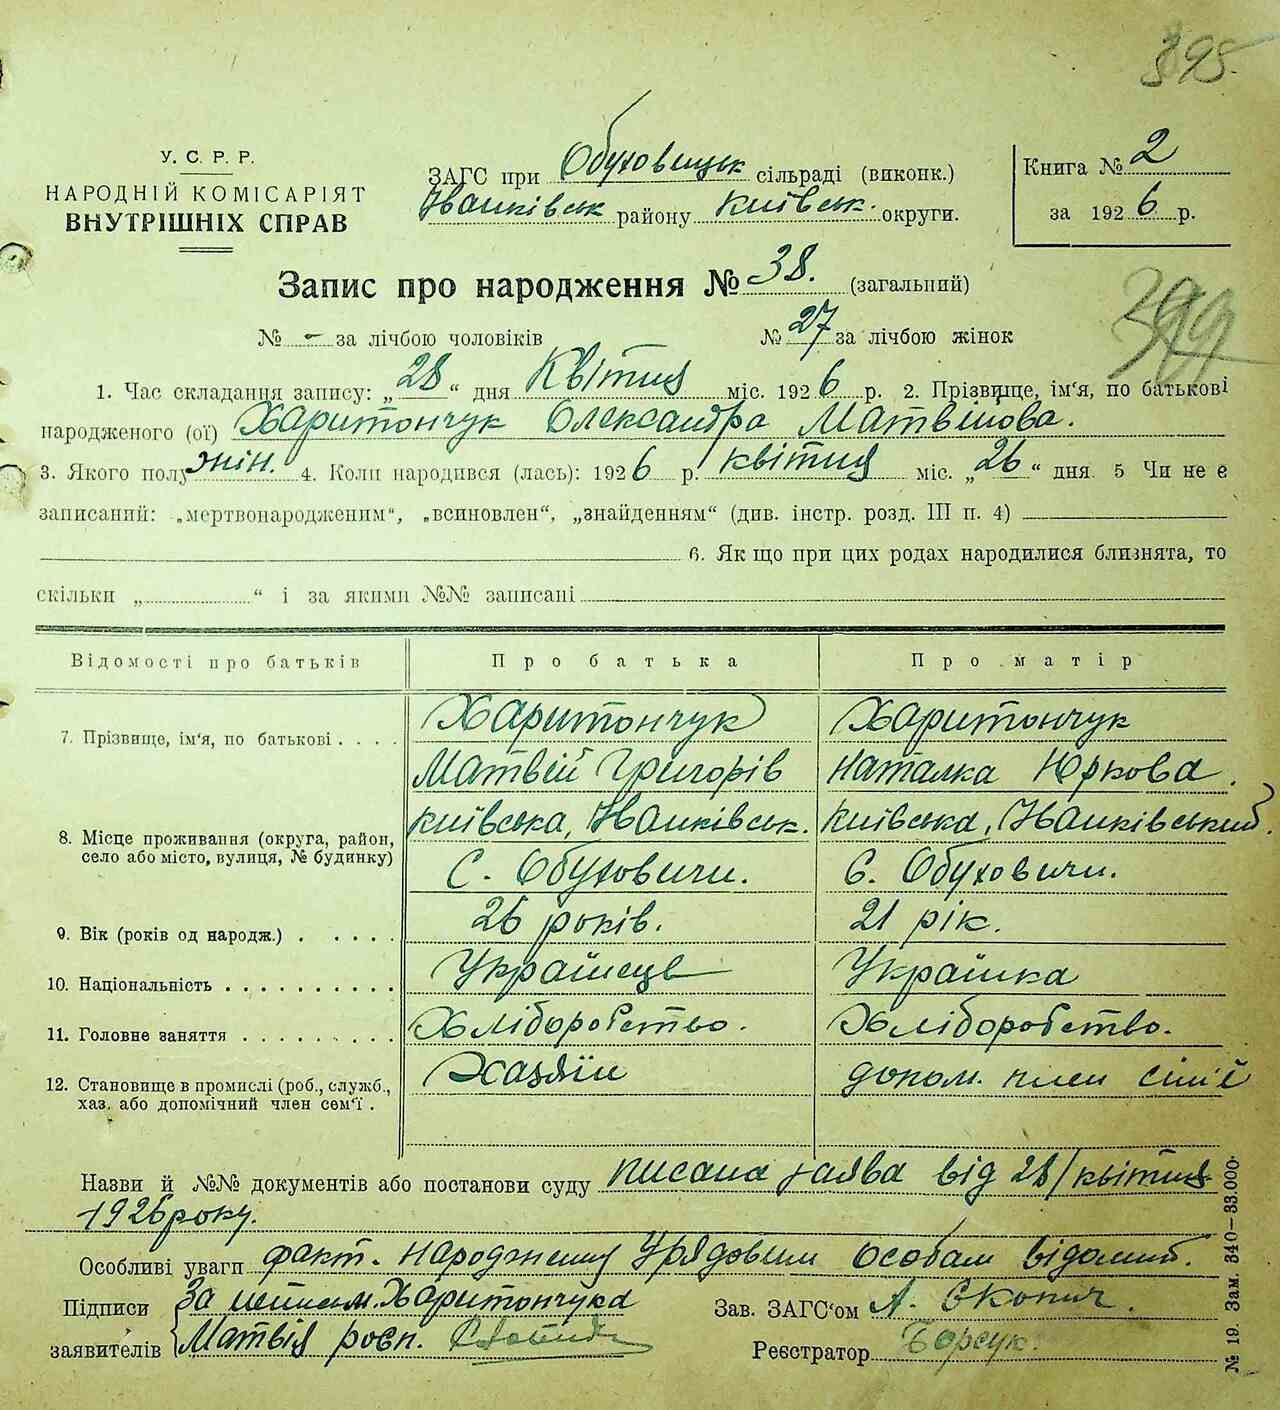 395.
У. С. Р. Р.
НАРОДНІЙ КОМІСАРІЯТ
ВНУТРІШНІХ СПРАВ
ЗАГС при Обуховицьк сільраді (виконк.)
Іванківськ району Київськ. округи.
Книга № 2
за 1926 р.
Запис про народження № 38. (загальний)
399
№ - за лічбою чоловіків № 27 за лічбою жінок
1. Час складання запису: „28“ дня Квітня міс. 1926 р. 2. Прізвище, ім‘я, по батькові
народженого (ої) Харитончук Олександра Матвіївова.
3. Якого полу жін. 4. Коли народився (лась): 1926 р. квітня міс. „26“ дня. 5 Чи не є
записаний: „мертвонародженим“, „всиновлен“, „знайденням“ (див. інстр. розд. III п. 4)
6. Як що при цих родах народилися близнята, то
скільки „ “ і за якими №№ записані
Відомості про батьків Про батька Про матір
7. Прізвище, ім‘я, по батькові . . . . Харитончук Харитончук
Матвій Григорів Наталка Юркова.
8. Місце проживання (округа, район, село або місто, вулиця, № будинку) Київська, Іванківськ. Київська, Іванківський.
С. Обуховичи. С. Обуховичи.
9. Вік (років од народж.) . . . . . 26 років. 21 рік.
10. Національність . . . . . . . . . . Українець Українка
11. Головне заняття . . . . . . . . . Хліборобство. Хліборобство.
12. Становище в промислі (роб., служб., хаз. або допомічний член сем‘ї . Хазяїн допом. член сім'ї
Назви й №№ документів або постанови суду писана заява від 28/квітня
1926 року.
Особливі уваги факт. народження Урядовим особам відомий.
Підписи За неписьм. Харитончука Зав. ЗАГС‘ом А. Скопич.
заявителів Матвія розп. Реєстратор Борсук.
№ 19. Зам. 340—33.000.